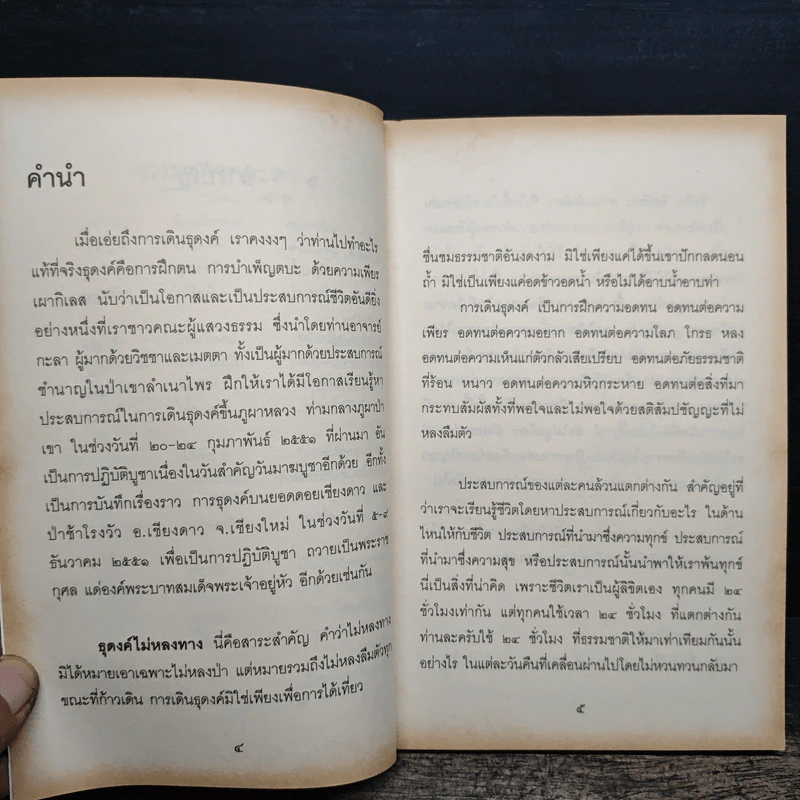 คำนำ
เมื่อเอ่ยถึงการเดินธุดงค์ เราคงงงๆ ว่าท่านไปทำอะไร
แท้ที่จริงธุดงค์คือการฝึกตน การบำเพ็ญตบะ ด้วยความเพียร
เผากิเลส นับว่าเป็นโอกาสและเป็นประสบการณ์ชีวิตอันดียิ่ง
อย่างหนึ่งที่เราชาวคณะผู้แสวงธรรม ซึ่งนำโดยท่านอาจารย์
กะลา ผู้มากด้วยวิชชาและเมตตา ทั้งเป็นผู้มากด้วยประสบการณ์
ชำนาญในป่าเขาลำเนาไพร ฝึกให้เราได้มีโอกาสเรียนรู้หา
ประสบการณ์ในการเดินธุดงค์ขึ้นภูผาหลวง ท่ามกลางภูผาป่า
เขา ในช่วงวันที่ ๒๐-๒๔ กุมภาพันธ์ ๒๕๕๑ ที่ผ่านมา อัน
เป็นการปฏิบัติบูชาเนื่องในวันสำคัญวันมาฆบูชาอีกด้วย อีกทั้ง
เป็นการบันทึกเรื่องราว การธุดงค์บนยอดดอยเชียงดาว และ
ป่าช้าโรงวัว อ.เชียงดาว จ.เชียงใหม่ ในช่วงวันที่ ๕-๙
ธันวาคม ๒๕๕๑ เพื่อเป็นการปฏิบัติบูชา ถวายเป็นพระราช
กุศล แด่องค์พระบาทสมเด็จพระเจ้าอยู่หัว อีกด้วยเช่นกัน
ธุดงค์ไม่หลงทาง นี่คือสาระสำคัญ คำว่าไม่หลงทาง
มิได้หมายเอาเฉพาะไม่หลงป่า แต่หมายรวมถึงไม่หลงลืมตัวทุก
ขณะที่ก้าวเดิน การเดินธุดงค์มิใช่เพียงเพื่อการได้เที่ยว
๔
ชื่นชมธรรมชาติอันงดงาม มิใช่เพียงแค่ได้ขึ้นเขาปักกลดนอน
ถ้ำ มิใช่เป็นเพียงแค่อดข้าวอดน้ำ หรือไม่ได้อาบน้ำอาบท่า
การเดินธุดงค์ เป็นการฝึกความอดทน อดทนต่อความ
เพียร อดทนต่อความอยาก อดทนต่อความโลภ โกรธ หลง
อดทนต่อความเห็นแก่ตัวกลัวเสียเปรียบ อดทนต่อภัยธรรมชาติ
ที่ร้อน หนาว อดทนต่อความหิวกระหาย อดทนต่อสิ่งที่มา
กระทบสัมผัสทั้งที่พอใจและไม่พอใจด้วยสติสัมปชัญญะที่ไม่
หลงลืมตัว
ประสบการณ์ของแต่ละคนล้วนแตกต่างกัน สำคัญอยู่ที่
ว่าเราจะเรียนรู้ชีวิตโดยหาประสบการณ์เกี่ยวกับอะไร ในด้าน
ไหนให้กับชีวิต ประสบการณ์ที่นำมาซึ่งความทุกข์ ประสบการณ์
ที่นำมาซึ่งความสุข หรือประสบการณ์นั้นนำพาให้เราพ้นทุกข์
นี่เป็นสิ่งที่น่าคิด เพราะชีวิตเราเป็นผู้ลิขิตเอง ทุกคนมี ๒๔
ชั่วโมงเท่ากัน แต่ทุกคนใช้เวลา ๒๔ ชั่วโมง ที่แตกต่างกัน
ท่านละครับใช้ ๒๔ ชั่วโมง ที่ธรรมชาติให้มาเท่าเทียมกันนั้น
อย่างไร ในแต่ละวันคืนที่เคลื่อนผ่านไปโดยไม่หวนทวนกลับมา
๕